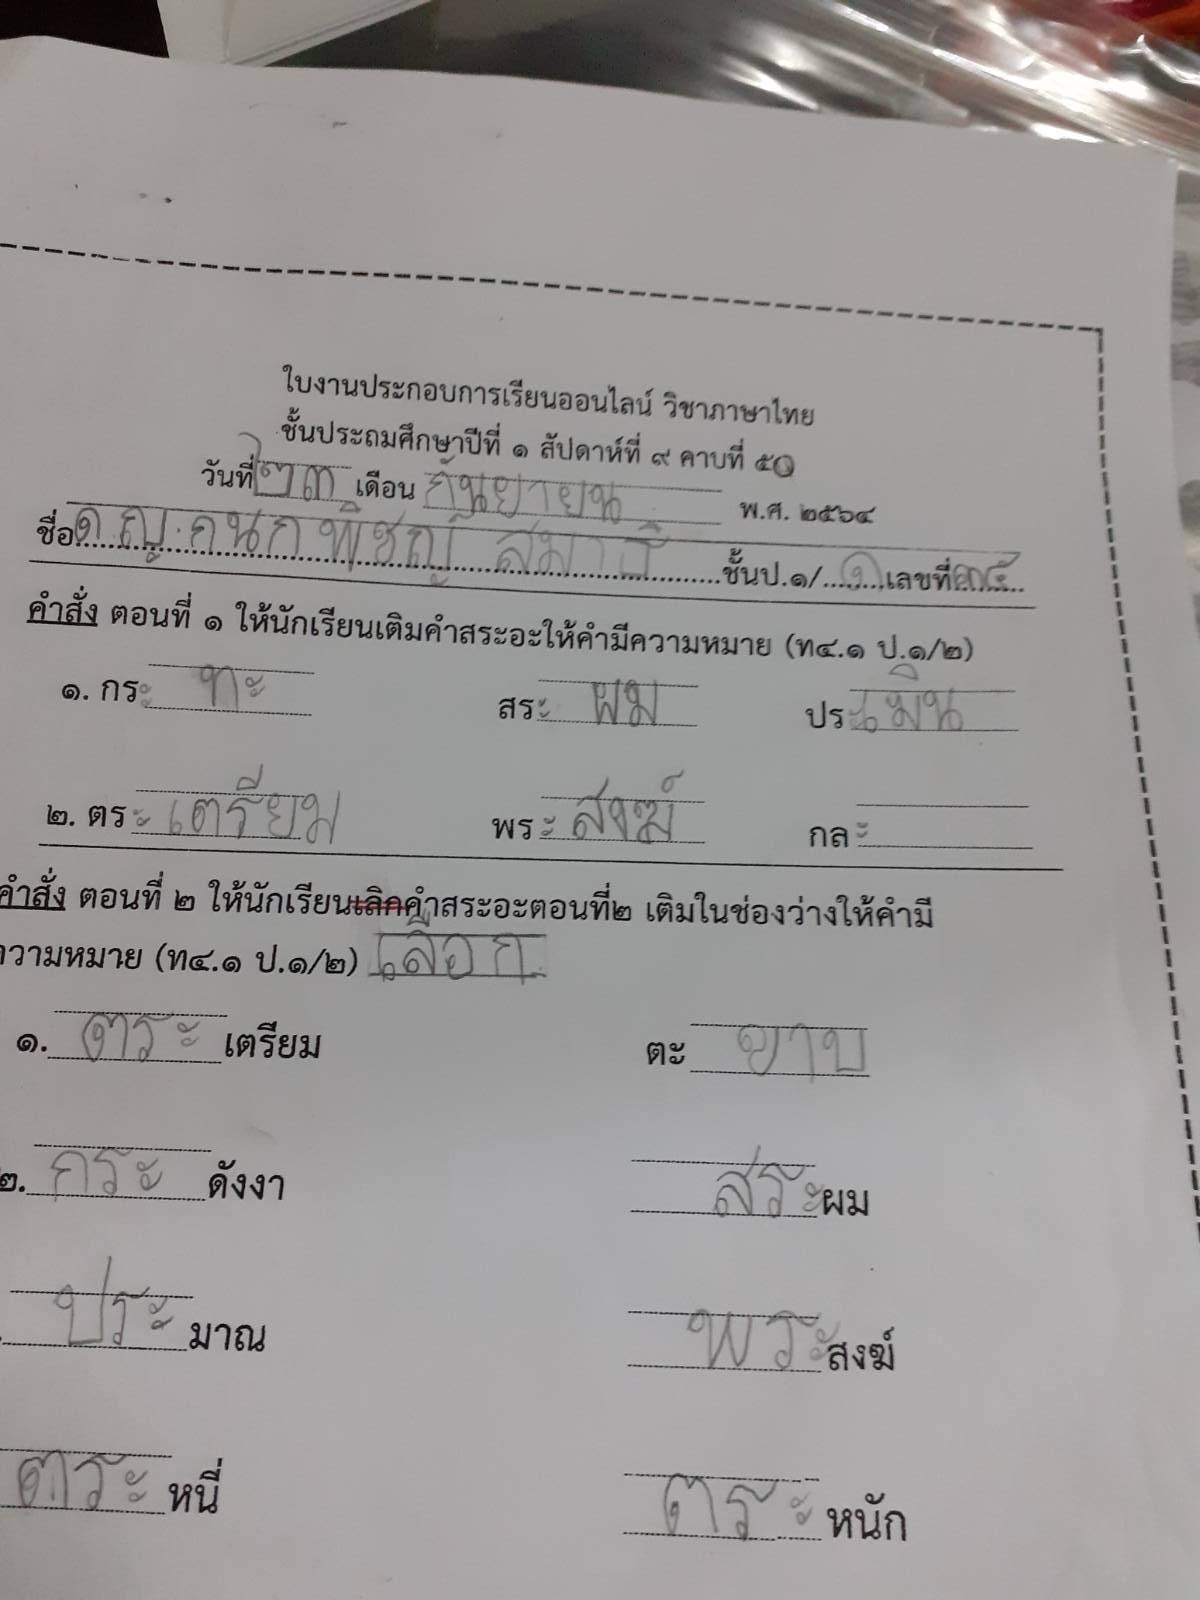 ใบงานประกอบการเรียนออนไลน์ วิชาภาษาไทย
ชั้นประถมศึกษาปีที่ ๑ สัปดาห์ที่ ๙ คาบที่ ๕๐
วันที่ ๒๓ เดือน กันยายน พ.ศ. ๒๕๖๔
ชื่อ ด.ญ.กนกพิชญ์ สมารี ชั้นป.๑/ ๑ เลขที่ ๓๕
คำสั่ง ตอนที่ ๑ ให้นักเรียนเติมคำสระอะให้คำมีความหมาย (ท๔.๑ ป.๑/๒)
๑. กระ ทะ สระ ผม ประ เมิน
๒. ตระ เตรียม พระ สงฆ์ กละ
คำสั่ง ตอนที่ ๒ ให้นักเรียนเลิกคำสระอะตอนที่๒ เติมในช่องว่างให้คำมี
ความหมาย (ท๔.๑ ป.๑/๒) เลือก
๑. ตระ เตรียม ตะ ขาบ
๒. กระ ดังงา สระ ผม
ประ มาณ พระ สงฆ์
ตระ หนี่ ตระ หนัก